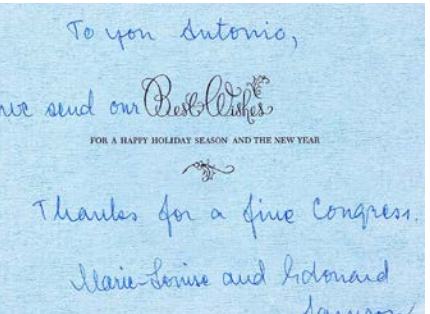 To you Antonio,
we send our Best Wishes
FOR A HAPPY HOLIDAY SEASON AND THE NEW YEAR
Thanks for a fine Congress.
Marie-Louise and Edouard